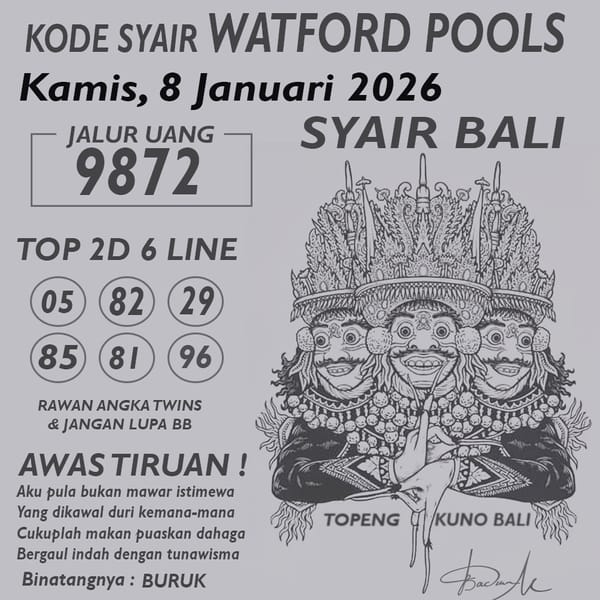 KODE SYAIR WATFORD POOLS
Kamis, 8 Januari 2026
JALUR UANG
9872
SYAIR BALI
TOP 2D 6 LINE
05 82 29
85 81 96
RAWAN ANGKA TWINS
& JANGAN LUPA BB
AWAS TIRUAN !
Aku pula bukan mawar istimewa
Yang dikawal duri kemana-mana
Cukuplah makan puaskan dahaga
Bergaul indah dengan tunawisma
Binatangnya : BURUK
TOPENG KUNO BALI